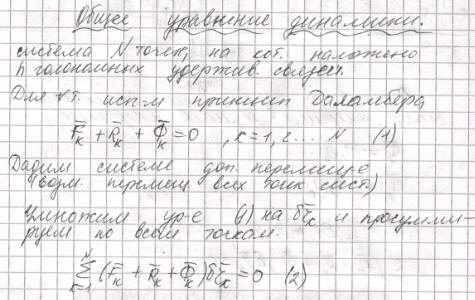 Общее уравнение динамики.
система N точек, на кот. наложено
n голономных удержив. связей.
Для ∀ т. исп-м принцип Даламбера
F̄ₖ + R̄ₖ + Φ̄ₖ = 0 , k=1, 2... N (1)
Дадим системе доп. перемещ-е
(возм. перемещ. всех точек сист.)
Умножим ур-е (1) на δr̄ₖ и просумми-
руем по всем точкам.
∑ₖ₌₁ᴺ (F̄ₖ + R̄ₖ + Φ̄ₖ) δr̄ₖ = 0 (2)